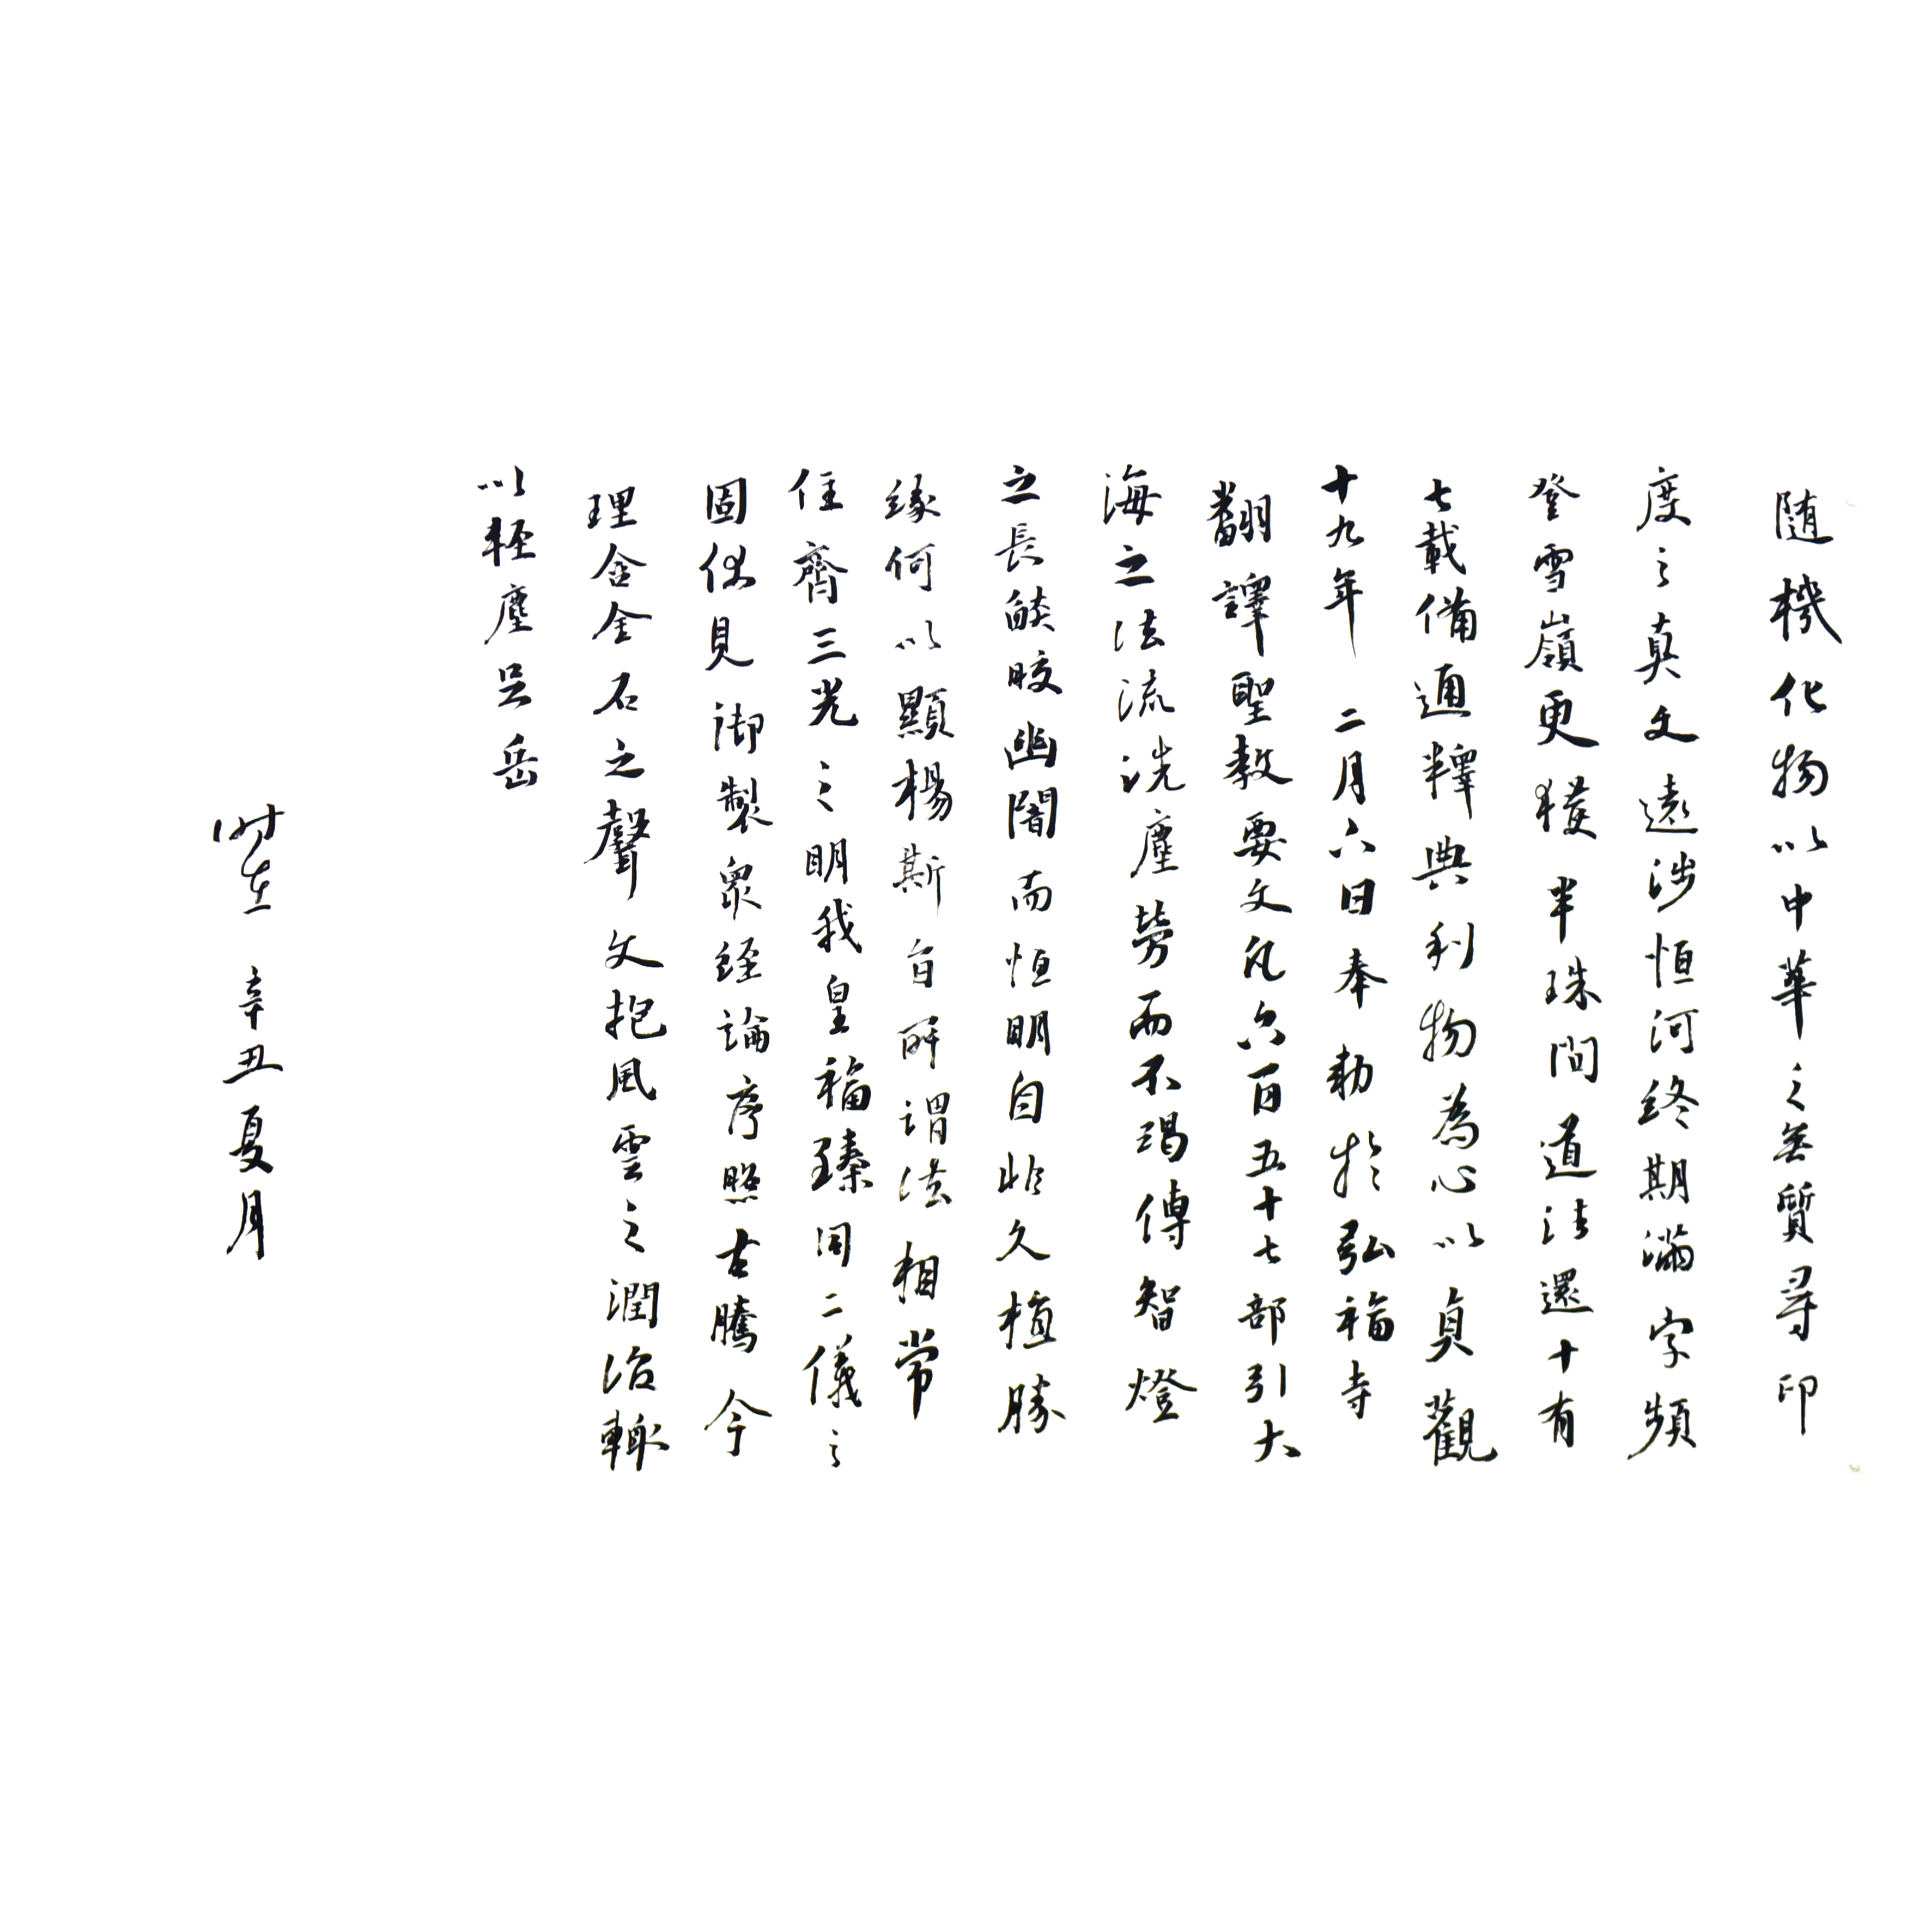 随機化物以中華之無質尋印
度之真文遠涉恒河終期滿字頻
登雪嶺更獲半珠問道法還十有
七載備通釋典利物為心以貞觀
十九年二月六日奉勅於弘福寺
翻譯聖教要文凡六百五十七部引大
海之法流洗塵勞而不竭傳智燈
之長焰皎幽闇而恒明自非久植勝
緣何以顯楊斯旨所謂法相常
住齊三光之明我皇福臻同二儀之
固伏見御製衆經論序照古騰今
理含金石之聲文抱風雲之潤治輒
以輕塵足岳
辛丑夏月